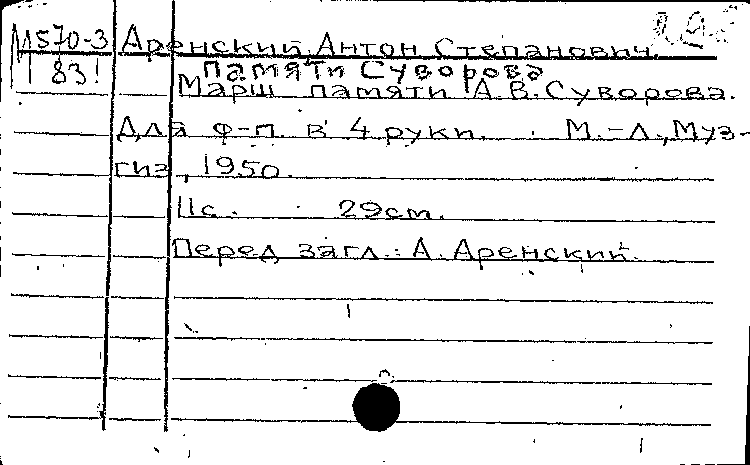 М570-3 Аренский, Антон Степанович.
83 Памяти Суворова
Марш памяти А.В.Суворова.
Для ф-п. в 4 руки. М.-Л., Муз-
гиз, 1950.
11с. 29см.
Перед загл.: А. Аренский.